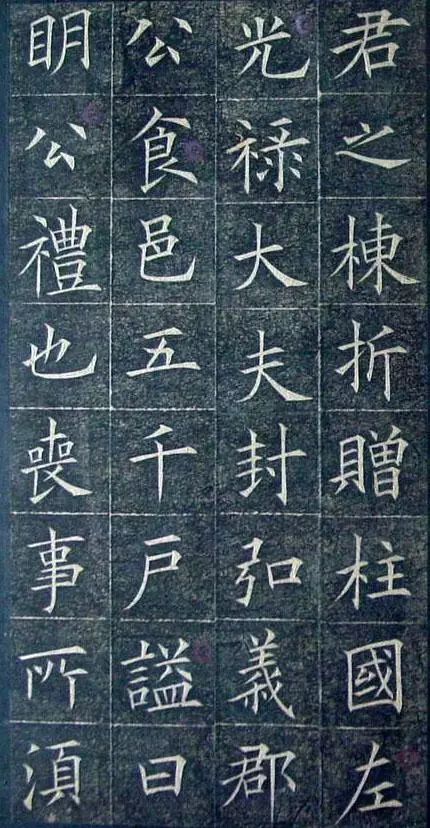 君之棟折贈柱國左
光禄大夫封弘義郡
公食邑五千戶謚曰
眀公禮也喪事所須